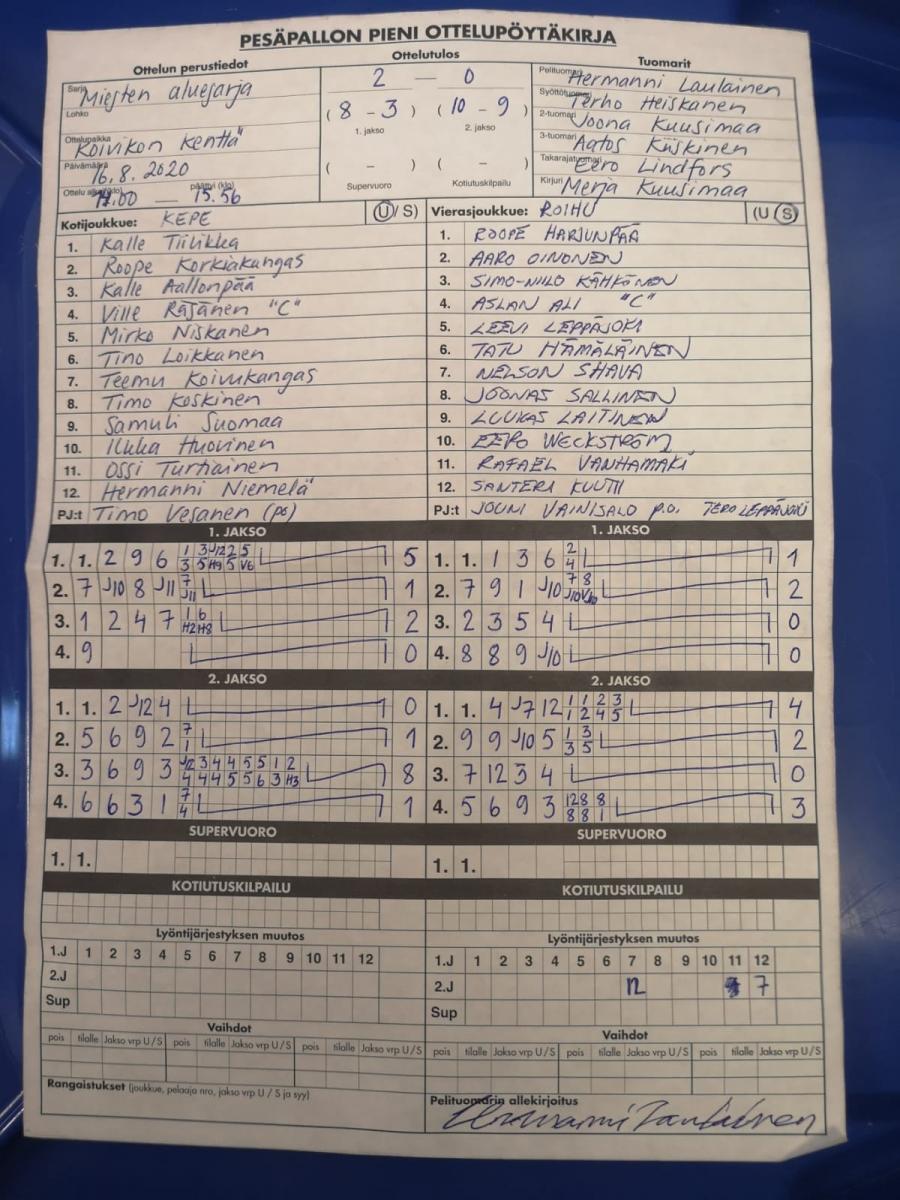 PESÄPALLON PIENI OTTELUPÖYTÄKIRJA
Ottelun perustiedot
Ottelutulos
Tuomarit
Sarja Miesten aluesarja
2 — 0
Pelituomari Hermanni Laulainen
Lohko
Syöttötuomari Terho Heiskanen
(8 - 3) (10 - 9)
2-tuomari Joona Kuusimaa
1. jakso 2. jakso
Ottelupaikka Koivikon kenttä
3-tuomari Aatos Kiiskinen
Päivämäärä 16.8.2020
( - ) ( - )
Takarajatuomari Eero Lindfors
Ottelu alkoi (klo) 14.00 — päättyi (klo) 15.56
Supervuoro Kotiutuskilpailu
Kirjuri Merja Kuusimaa
Kotijoukkue: KEPE (U/S)
1. Kalle Tiilikka
2. Roope Korkiakangas
3. Kalle Aallonpää
4. Ville Räsänen "C"
5. Mirko Niskanen
6. Tino Loikkanen
7. Teemu Koivukangas
8. Timo Koskinen
9. Samuli Suomaa
10. Ilkka Huovinen
11. Ossi Turtiainen
12. Hermanni Niemelä
PJ:t Timo Vesanen (ps)
Vierasjoukkue: ROIHU (U/S)
1. ROOPE HARJUNPÄÄ
2. AARO OINONEN
3. SIMO-NIILO KÄHKÖNEN
4. ASLAN ALI "C"
5. LEEVI LEPPÄJOKI
6. TATU HÄMÄLÄINEN
7. NELSON SHAVA
8. JOONAS SALLINEN
9. LUUKAS LAITINEN
10. EERO WECKSTRÖM
11. RAFAEL VANHAMÄKI
12. SANTERI KUUTTI
PJ:t JOUNI VAINISALO p.o. TERO LEPPÄJOKI
1. JAKSO
1. 1. 2 9 6 1 3 J12 2 5 5
3 5 H9 5 V6
2. 7 J10 8 J11 7 1
J11
3. 1 2 4 7 1 6 2
H2 H8
4. 9 0
1. JAKSO
1. 1. 1 3 6 2 1
4
2. 7 9 1 J10 7 8 2
J10 V10
3. 2 3 5 4 0
4. 8 8 9 J10 0
2. JAKSO
1. 1. 2 J12 4 0
2. 5 6 9 2 7 1
1
3. 3 6 9 3 J12 3 4 4 5 5 1 2 8
4 4 4 5 5 6 3 H3
4. 6 6 3 1 7 1
4
2. JAKSO
1. 1. 4 J7 12 1 1 2 3 4
1 2 4 5
2. 9 9 J10 5 1 3 2
3 5
3. 7 12 3 4 0
4. 5 6 9 3 12 8 8 3
8 8 1
SUPERVUORO
1. 1.
SUPERVUORO
1. 1.
KOTIUTUSKILPAILU
KOTIUTUSKILPAILU
Lyöntijärjestyksen muutos
1.J 1 2 3 4 5 6 7 8 9 10 11 12
2.J
Sup
Lyöntijärjestyksen muutos
1.J 1 2 3 4 5 6 7 8 9 10 11 12
2.J 12 7
Sup
Vaihdot
pois tilalle Jakso vrp U/S pois tilalle Jakso vrp U/S pois tilalle Jakso vrp U/S
Vaihdot
pois tilalle Jakso vrp U/S pois tilalle Jakso vrp U/S pois tilalle Jakso vrp U/S
Rangaistukset (joukkue, pelaaja nro, jakso vrp U / S ja syy)
Pelituomarin allekirjoitus
Hermanni Laulainen